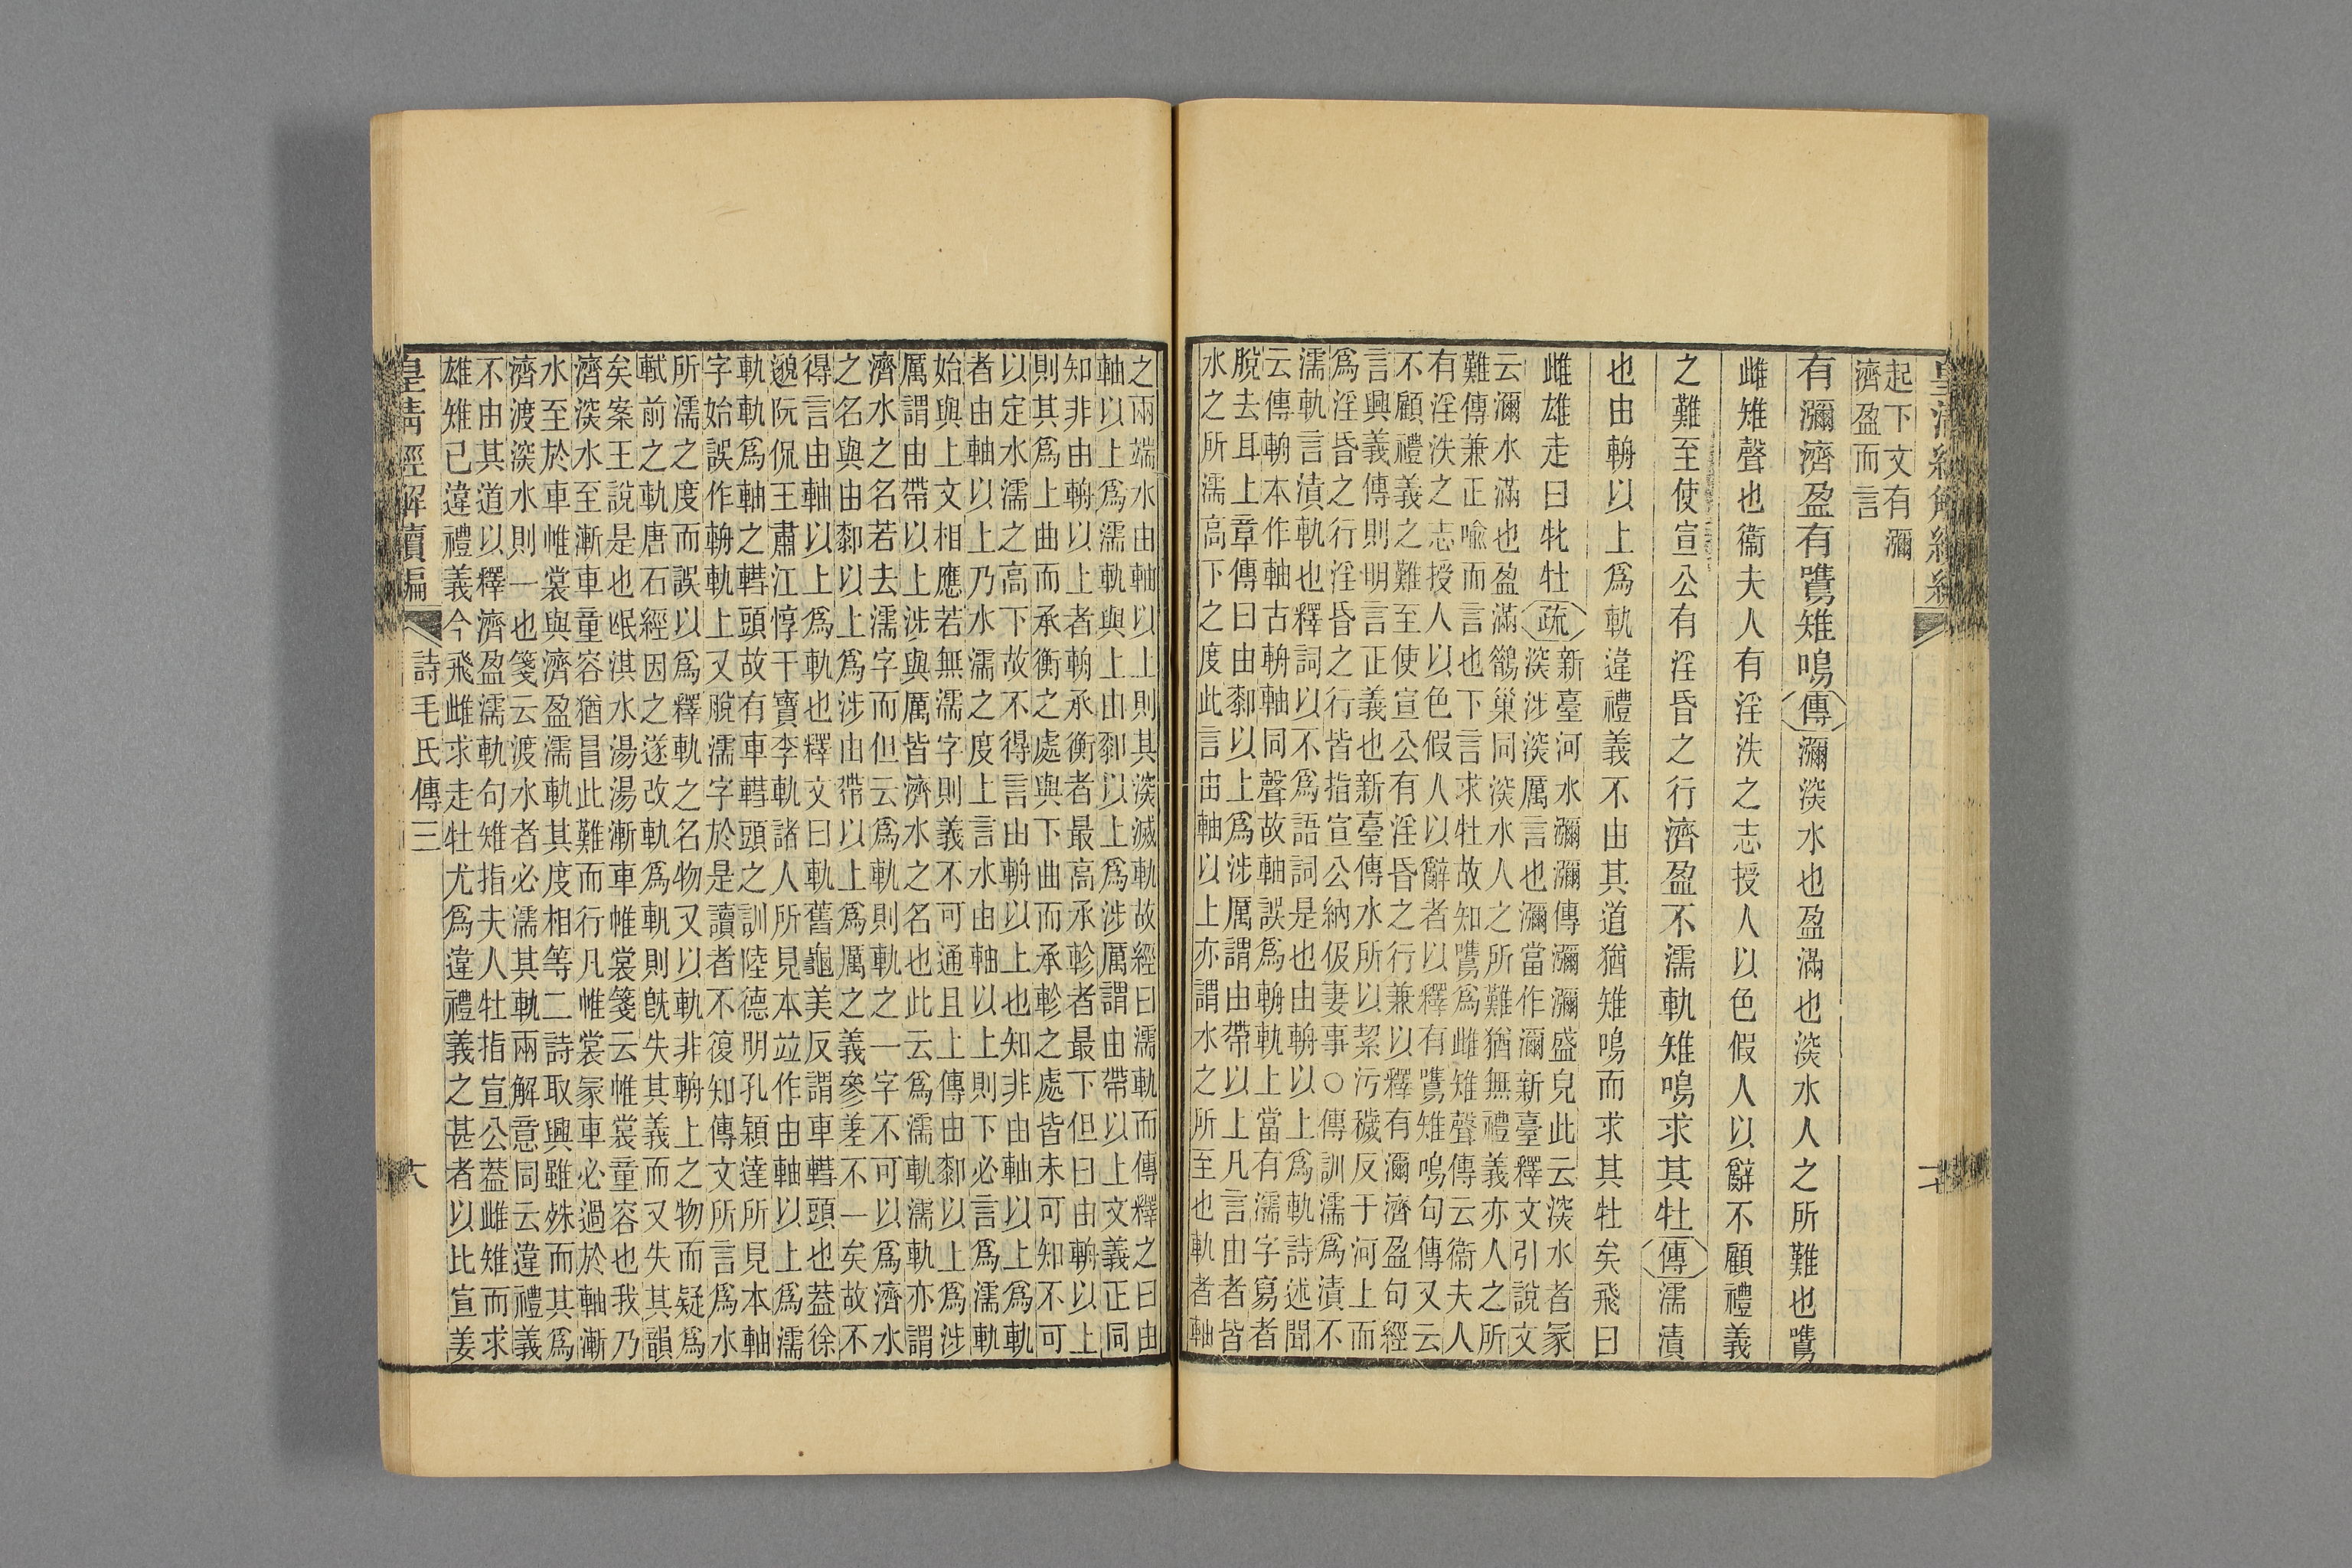 起下文有瀰
濟盈而言
有瀰濟盈有鷕雉鳴傳瀰深水也盈滿也深水人之所難也鷕
雌雉聲也衞夫人有淫泆之志授人以色假人以辭不顧禮義
之難至使宣公有淫昏之行濟盈不濡軌雉鳴求其牡傳濡漬
也由輈以上爲軌違禮義不由其道猶雉鳴而求其牡矣飛曰
雌雄走曰牝牡疏
新臺河水瀰瀰傳瀰瀰盛皃此云深水者冡
深涉深厲言也瀰當作濔新臺釋文引說文
云濔水滿也盈滿鵲巢同深水人之所難猶無禮義亦人之所
難傳兼正喻而言也下言求牡故知鷕爲雌雉聲傳云衞夫人
有淫泆之志授人以色假人以辭者以釋有鷕雉鳴句傳又云
不顧禮義之難至使宣公有淫昏之行兼以釋有瀰濟盈句經
言興義傳則明言正義也新臺傳水所以絜污穢反于河上而
爲淫昏之行淫昏之行皆指宣公納伋妻事○傳訓濡爲漬不
濡軌言漬軌也釋詞以不爲語詞是也由輈以上爲軌詩述聞
云傳輈本作軸古輈軸同聲故軸誤爲輈軌上當有濡字寫者
脫去耳上章傳曰由厀以上爲涉厲謂由帶以上凡言由者皆
水之所濡高下之度此言由軸以上亦謂水之所至也軌者軸
之兩端水由軸以上則其深滅軌故經曰濡軌而傳釋之曰由
軸以上爲濡軌與上由厀以上爲涉厲謂由帶以上文義正同
知非由輈以上者輈承衡者最高承軫者最下但曰由輈以上
則其爲上曲而承衡之處與下曲而承軫之處皆未可知不可
以定水濡之高下故不得言由輈以上也知非由軸以上爲軌
者由軸以上乃水濡之度上言水由軸以上則下必言爲濡軌
始與上文相應若無濡字則義不可通且上傳由厀以上爲涉
厲謂由帶以上涉與厲皆濟水之名也此云爲濡軌濡軌亦謂
濟水之名若去濡字而但云爲軌則軌之一字不可以爲濟水
之名與由厀以上爲涉由帶以上爲厲之義參差不一矣故不
得言由軸以上爲軌也釋文曰軌舊龜美反謂車轊頭也葢徐
邈阮侃王肅江惇干寶李軌諸人所見本竝作由軸以上爲濡
軌軌爲軸之轊頭故有車轊頭之訓陸德明孔穎達所見本軸
字始誤作輈軌上又脫濡字於是讀者不復知傳文所言爲水
所濡之度而誤以爲釋軌之名物又以軌非輈上之物而疑爲
軓前之軌唐石經因之遂改軌爲軓則旣失其義而又失其韻
矣案王說是也氓淇水湯湯漸車帷裳箋云帷裳童容也我乃
濟深水至漸車童容猶昌此難而行凡帷裳冡車必過於軸漸
水至於車帷裳與濟盈濡軌其度相等二詩取興雖殊而其爲
濟渡深水則一也箋云渡水者必濡其軌兩解意同云違禮義
不由其道以釋濟盈濡軌句雉指夫人牡指宣公葢雌雉而求
雄雉己違禮義今飛雌求走牡尤爲違禮義之甚者以比宣姜
皇淸經解續編
詩毛氏傳三